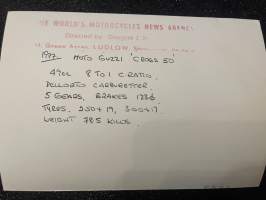 WORLD'S MOTORCYCLES NEWS AGENCY
Directed by
LUDLOW,
MOTO GUZZI 'CROSS 50'
49cc 8 TO 1 C. RATIO.
DELLORTO CARBURETTER
5 GEARS, BRAKES
TYRES, 2.50 x 19, 3.00 x 17
WEIGHT 78.5 KILOS